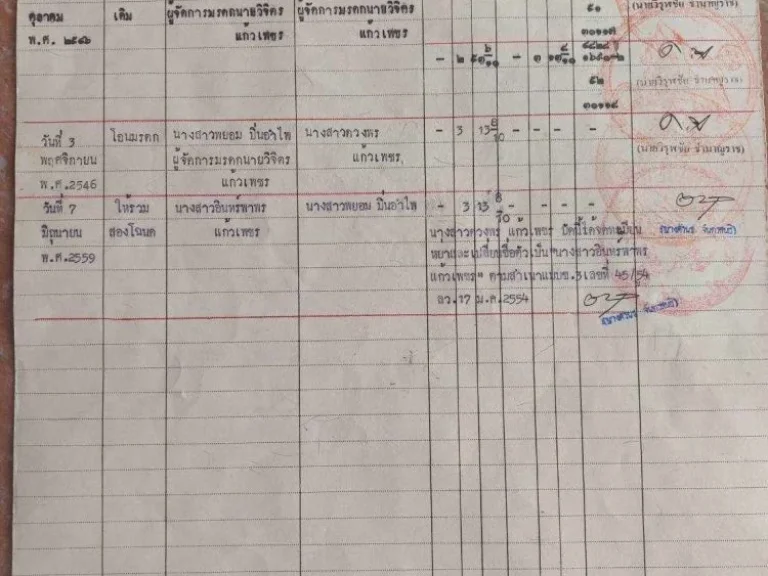 ตุลาคม เดิม ผู้จัดการมรดกนายวิจิตร ผู้จัดการมรดกนายวิจิตร ๕๑
พ.ศ. ๒๕๔๖ แก้วเพชร แก้วเพชร ๓๐๑๑๗
- ๒
๕๒
(นายวิรุฬชัย ชำนาญราช)
๓๐๑๑๘
วันที่ 3 โอนมรดก นางสาวพยอม ปิ่นอำไพ นางสาวดวงพร - 3 13 8/10 - - - -
พฤศจิกายน ผู้จัดการมรดกนายวิจิตร แก้วเพชร (นายวิรุฬชัย ชำนาญราช)
พ.ศ.2546 แก้วเพชร
วันที่ 7 ให้รวม นางสาวอินทร์พาพร นางสาวพยอม ปิ่นอำไพ - 3 13 8/10 - - - -
มิถุนายน สองโฉนด แก้วเพชร นางสาวดวงพร แก้วเพชร
พ.ศ.2559 และเปลี่ยนชื่อตัวเป็น "นางสาวอินทร์พาพร
แก้วเพชร" ตามสำเนาแบบช.3 เลขที่ 45/54
ลว.17 ม.ค.2554